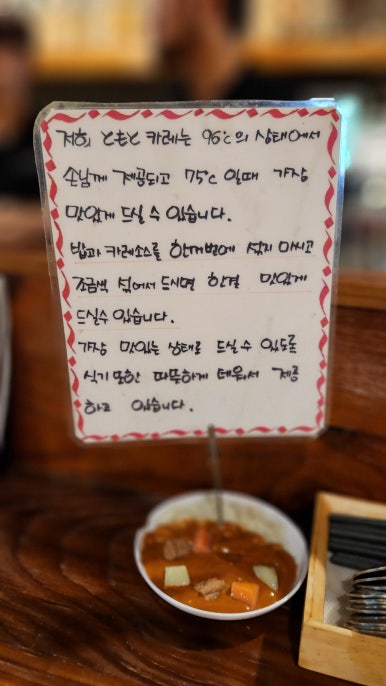 저희 ともと 카레는 96℃의 상태에서
손님께 제공되고 75℃ 일때 가장
맛있게 드실 수 있습니다.
밥과 카레소스를 한꺼번에 섞지 마시고
조금씩 섞어서 드시면 한결 맛있게
드실수 있습니다.
가장 맛있는 상태로 드실 수 있도록
식기 또한 따뜻하게 데워서 제공
하고 있습니다.